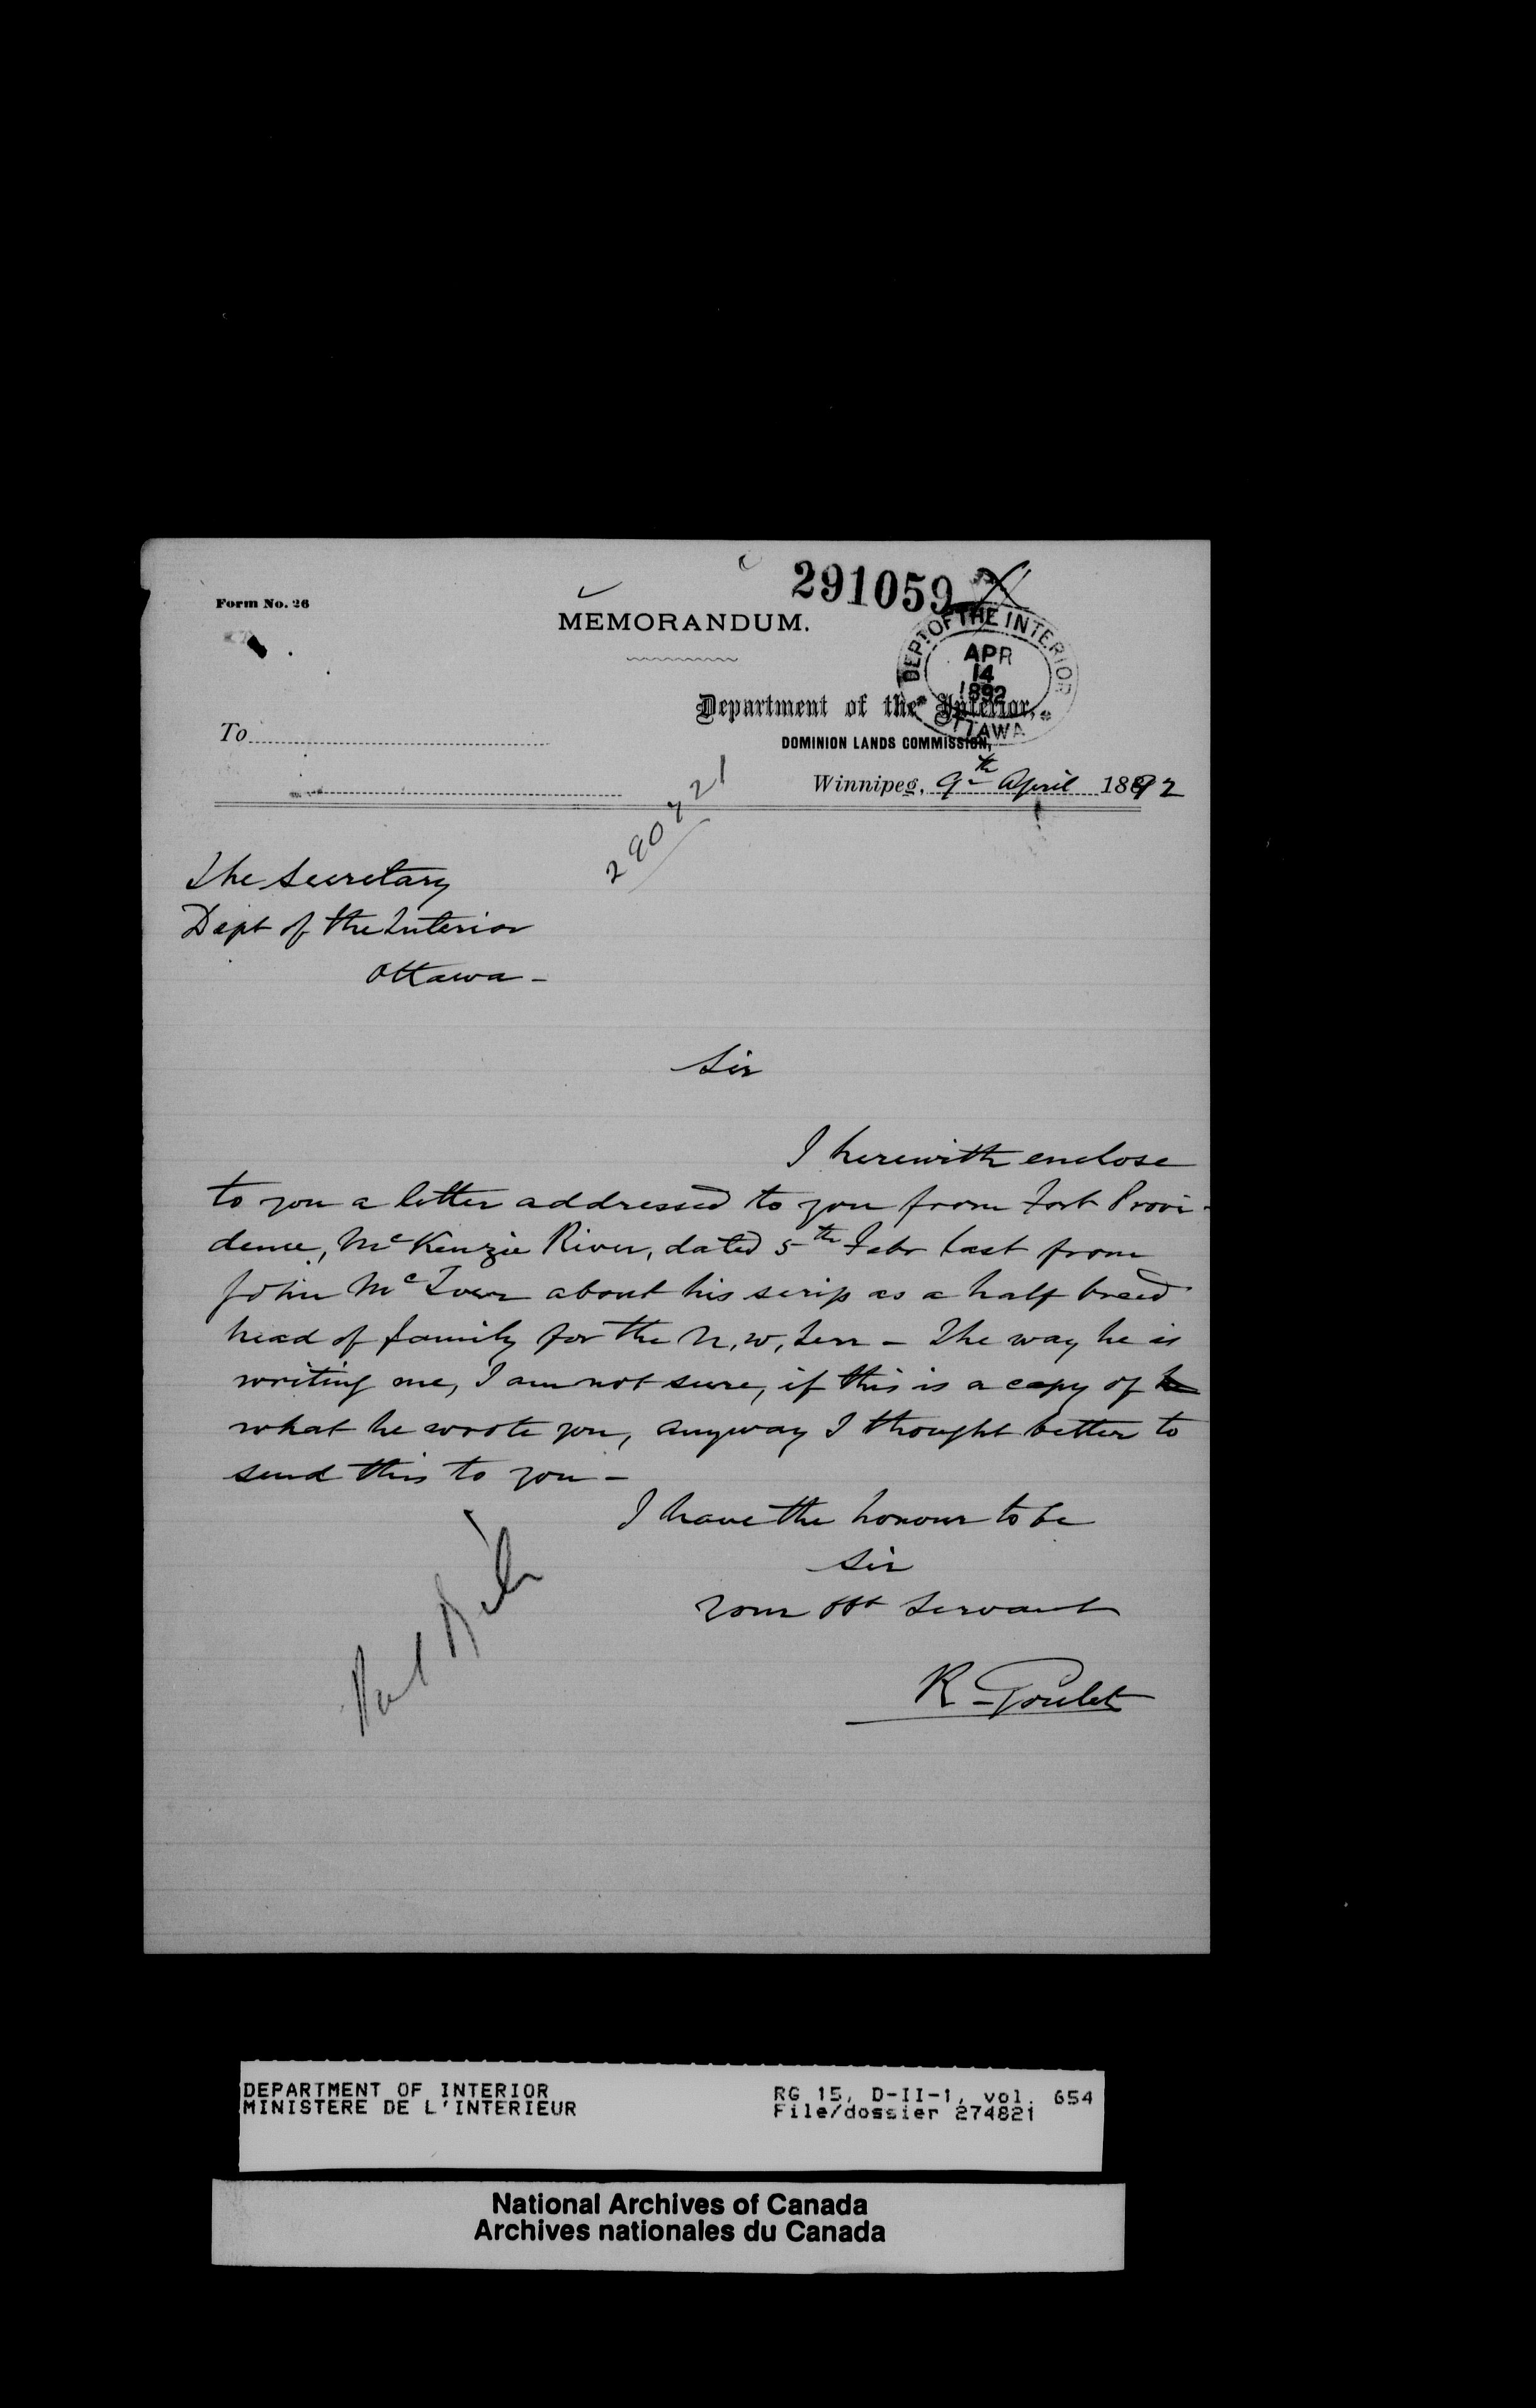 291059
Form No. 26
MEMORANDUM.
DEPT OF THE INTERIOR
APR
14
1892
OTTAWA
Department of the Interior,
To
DOMINION LANDS COMMISSION,
Winnipeg, 9th April 1892
The Secretary
Dept of the Interior
Ottawa -
Sir
I herewith enclose
to you a letter addressed to you from Fort Provi-
dence, McKenzie River, dated 5th Febr last from
John McIver about his scrip as a half breed
head of family for the N, W, Terr - The way he is
writing me, I am not sure, if this is a copy of
what he wrote you, anyway I thought better to
send this to you -
I have the honour to be
Sir
Your Obt Servant
R Goulet
DEPARTMENT OF INTERIOR
MINISTERE DE L'INTERIEUR
RG 15, D-II-1, vol. 654
File/dossier 274821
National Archives of Canada
Archives nationales du Canada